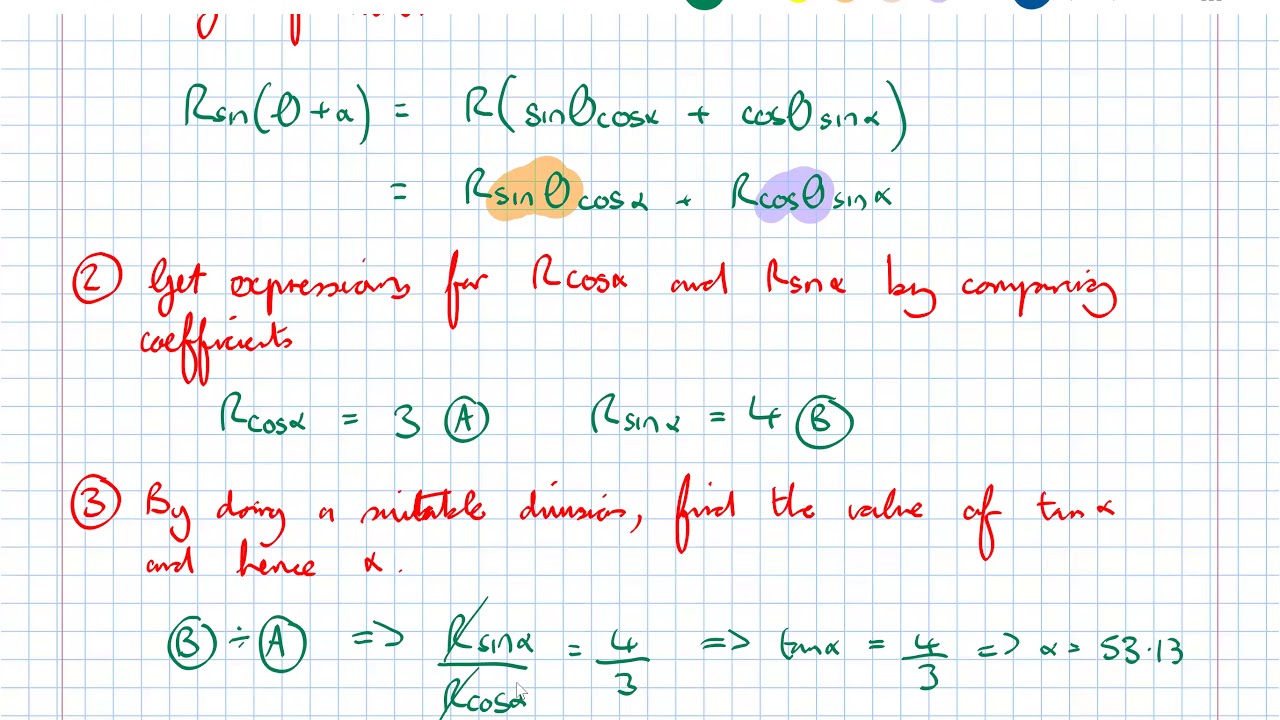 Rsin(θ+α) = R(sinθcosα + cosθsinα)
= Rsinθcosα + Rcosθsinα
② Get expressions for Rcosα and Rsinα by comparing
coefficients
Rcosα = 3 Ⓐ Rsinα = 4 Ⓑ
③ By doing a suitable division, find the value of tanα
and hence α.
Ⓑ ÷ Ⓐ => Rsinα/Rcosα = 4/3 => tanα = 4/3 => α = 53.13